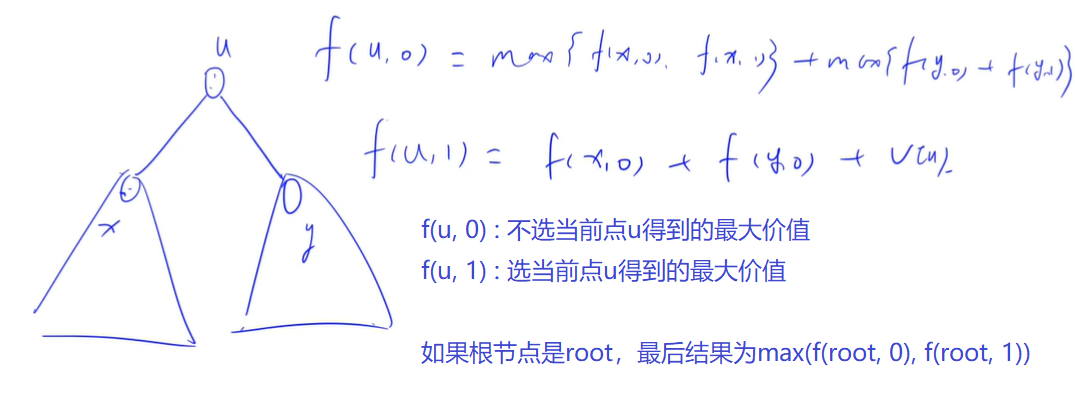 u
f(u,0) = max{f(x,0), f(x,1)} + max{f(y,0) + f(y,1)}
f(u,1) = f(x,0) + f(y,0) + v(u)
x
y
f(u, 0) : 不选当前点u得到的最大价值
f(u, 1) : 选当前点u得到的最大价值
如果根节点是root，最后结果为max(f(root, 0), f(root, 1))